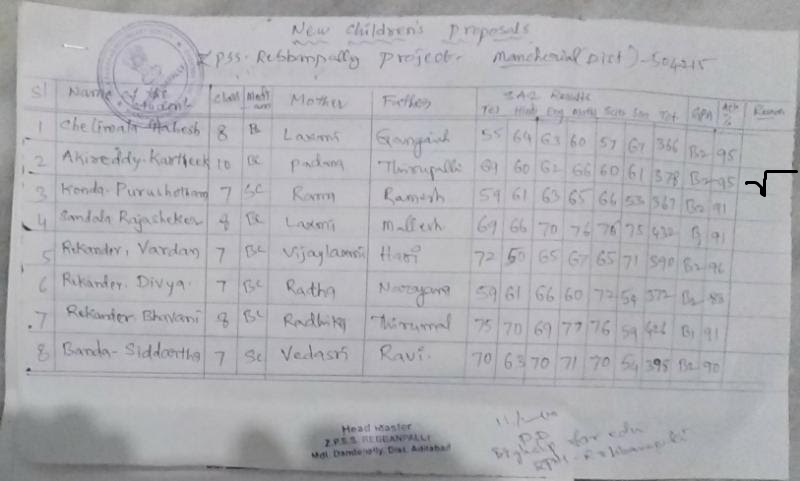 New Children's Proposals
ZPSS. Rebbanpally Project. Mancherial Dist)-504215
Sl Name of the Student Class Mother Father SA2 Results
Tel Hindi Eng Maths Scin Soc Tot GPA %
1 Chelimala Mahesh 8 BC Laxmi Gangaiah 55 64 63 60 57 67 366 B2 95
2 Akireddy. Kartheek 10 BC Padma Thirupathi 69 60 62 66 60 61 378 B2 95
3 Konda. Purushotham 7 SC Rama Ramesh 59 61 63 65 66 53 367 B2 91
4 Sandala Rajasheker 8 BC Laxmi Mallesh 69 66 70 76 76 75 432 B1 91
5 Rekander, Vardan 7 BC Vijaylaxmi Hari 72 50 65 67 65 71 390 B2 96
6 Rekander. Divya. 7 BC Radha Narayana 59 61 66 60 72 54 372 B2 88
7 Rekander. Bhavani 8 BC Radhika Thirumal 75 70 69 77 76 59 426 B1 91
8 Banda- Siddartha 7 SC Vedasri Ravi. 70 63 70 71 70 54 395 B2 90
Head Master
Z.P.S.S. REBBANPALLI
Mdl. Dandepally, Dist. Adilabad
P.D
Bighelp for edn